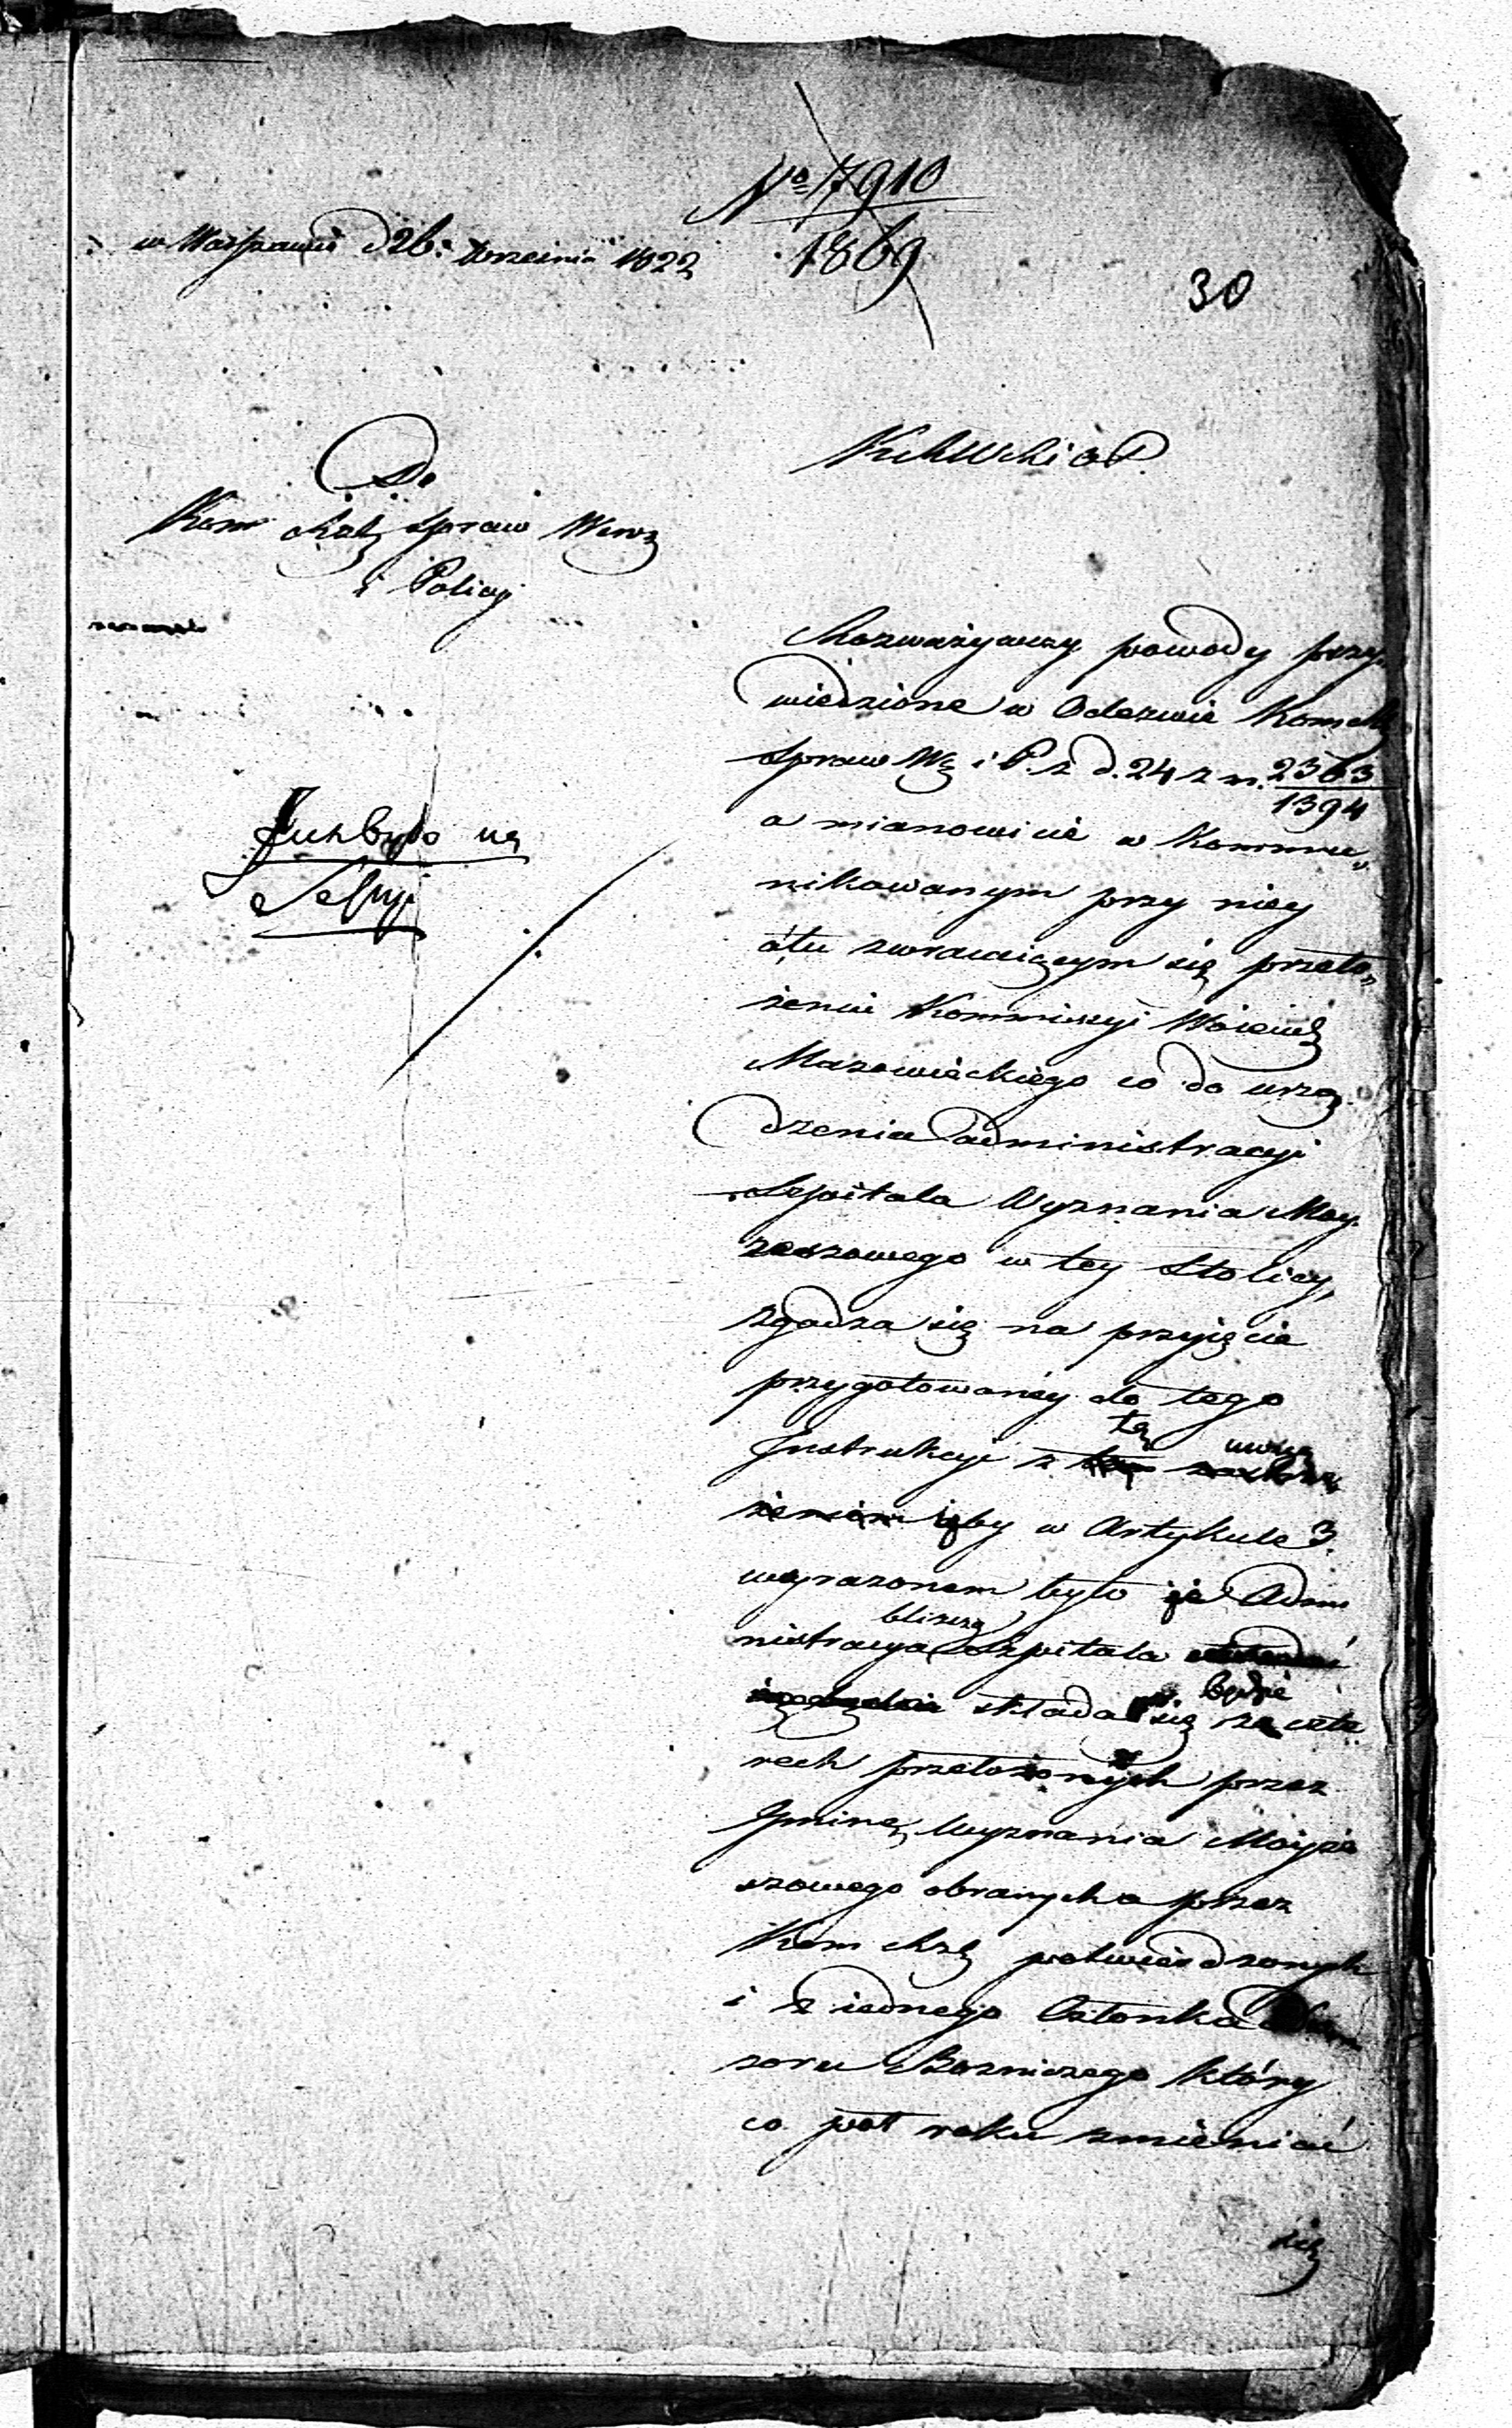 No 17910
1869
w Warszawie d 26: Września 1822
30
Do
Kom Rzą Spraw Wewn
i Policyi
Już było na
Sessyi
Rozważywszy powody przy-
wiedzione w Odezwie Kom Rz
Spraw W i P. z d. 24 z m. 2363
1394
a mianowicie w kommu-
nikowanym przy niey
a tu zwracaiącym się przeło-
żeniu Kommissyi Woiewdz
Mazowieckiego co do urzą-
dzenia administracyi
Szpitala Wyznania Moy-
żeszowego w tey Stolicy,
zgadza się na przyięcie
przygotowaney do tego
Instrukcyi z tą uwagą
żeniem iżby w Artykule 3.
wyrażonem było że Admi
nistracya bliższa Szpitala
składać się będzie ze czte
rech przełożonych przez
Gminę Wyznania Moyże
szowego obranych a przez
Kom Rzą potwierdzonych
i z iednego Członka
zoru Bożniczego który
co pół roku zmieniać
się